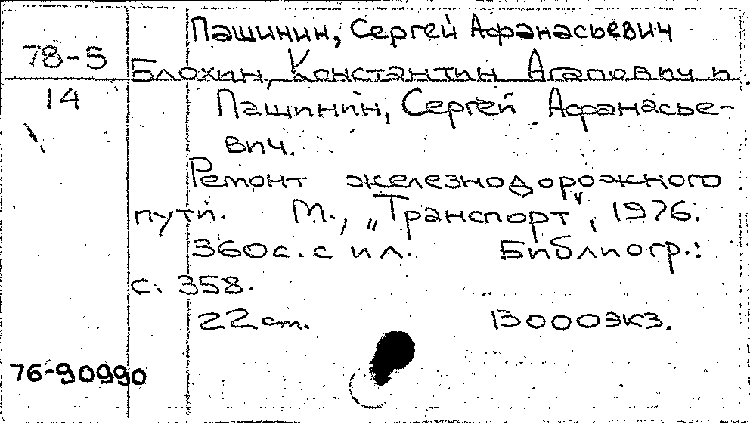 Пашинин, Сергей Афанасьевич
78-5
Блохин, Константин Агапович и
14
Пашинин, Сергей Афанасье-
вич.
Ремонт железнодорожного
пути. М., „Транспорт", 1976.
360с. с ил. Библиогр.:
с. 358.
22 см. 13000экз.
76-90990